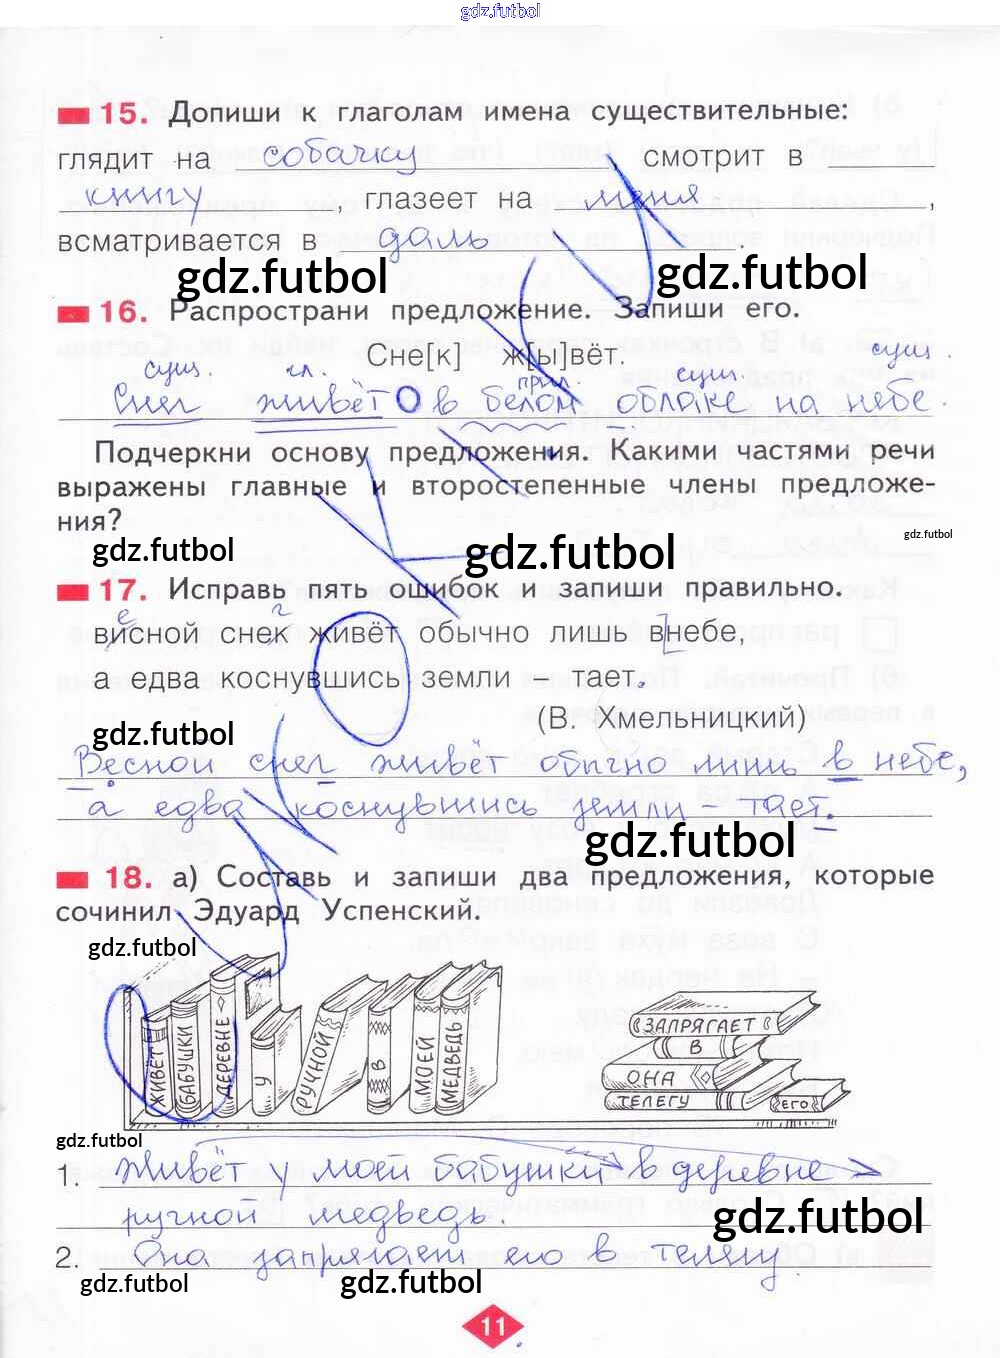 gdz.futbol
15. Допиши к глаголам имена существительные:
глядит на собачку, смотрит в
книгу, глазеет на меня,
всматривается в даль.
gdz.futbol gdz.futbol
16. Распространи предложение. Запиши его.
Сне[к] ж[ы]вёт.
сущ. гл. прил. сущ. сущ.
Снег живёт в белом облаке на небе.
Подчеркни основу предложения. Какими частями речи
выражены главные и второстепенные члены предложе-
ния?
gdz.futbol gdz.futbol gdz.futbol
17. Исправь пять ошибок и запиши правильно.
е г
висной снек живёт обычно лишь внебе,
а едва коснувшись земли – тает.
(В. Хмельницкий)
gdz.futbol
Весной снег живёт обычно лишь в небе,
а едва коснувшись земли – тает.
gdz.futbol
18. а) Составь и запиши два предложения, которые
сочинил Эдуард Успенский.
gdz.futbol
ЖИВЁТ БАБУШКИ ДЕРЕВНЕ У РУЧНОЙ В МОЕЙ МЕДВЕДЬ
ЗАПРЯГАЕТ
В
ОНА
ТЕЛЕГУ ЕГО
gdz.futbol
1. Живёт у моей бабушки в деревне
ручной медведь.
gdz.futbol
2. Она запрягает его в телегу.
gdz.futbol gdz.futbol
11